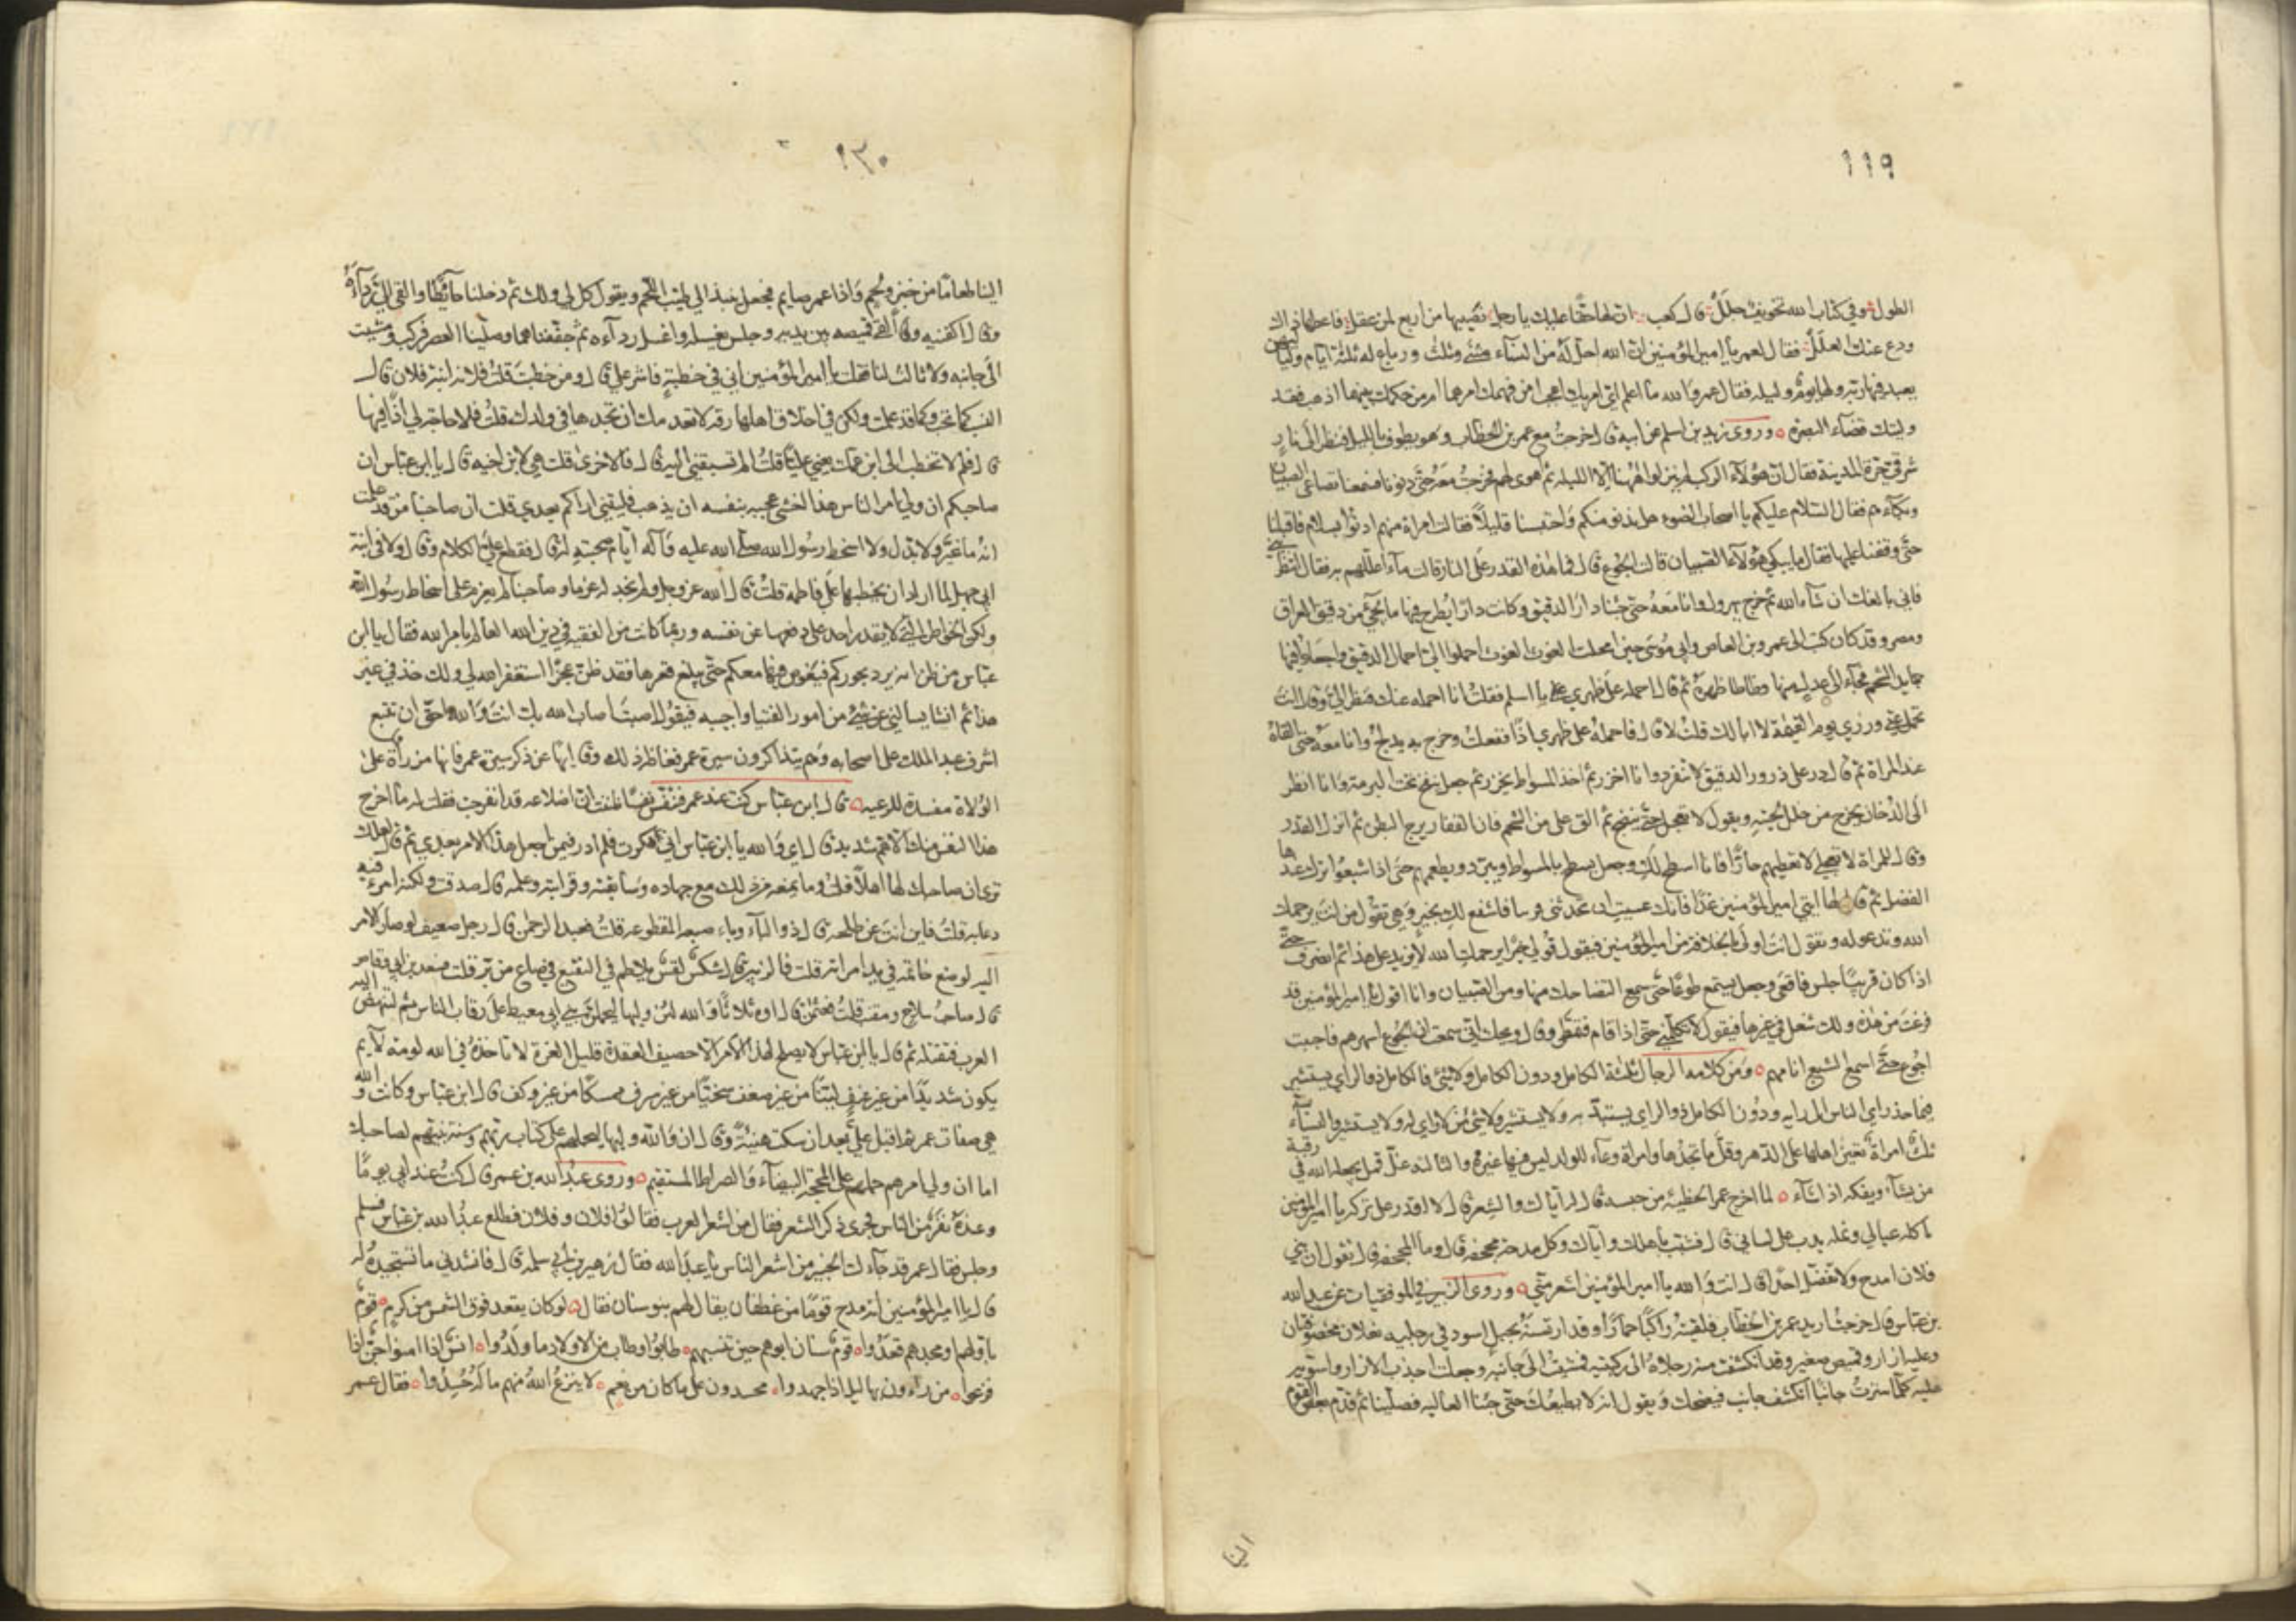 ١١٩
الطول وفي كتاب الله تخويف جلل قال كعب ان لها حقا عليك يا رجل نصيبها من اربع لمن عقل فاعطها ذاك
ودع عنك العلل فقال لعمر يا امير المؤمنين ان الله احل له من النساء مثنى وثلث ورباع فله ثلثة ايام ولياليهن
يعبد فيها ربه ولها يوم وليله فقال عمر والله ما اعلم اي امريك اعجب امن فهمك امرهما ام من حكمك بينهما اذهب فقد
وليتك قضاء البصرة وروى زيد بن اسلم عن ابيه قال خرجت مع عمر بن الخطاب وهو يطوف بالليل فنظر الى نار
شرقي حرة المدينة فقال ان هؤلاء الركب لم ينزلوا ههنا الا الليله ثم اهوى لهم فخرجت معه حتى دنونا فسمعنا تضاغي الصبيان
وبكاءهم فقال السلام عليكم يا اصحاب الضوء هل ندنو منكم واحتبسنا قليلا فقالت امراة منهم ادنوا بسلام فاقبلنا
حتى وقفنا عليها فقال ما يبكي هؤلاء الصبيان قالت الجوع قال فما هذه القدر على النار قالت ماء اعللهم به فقال انتظريني
فاني بالغك ان شاء الله ثم خرج يهرول وانا معه حتى جئنا دار الدقيق وكانت دارا يطرح فيها ما يجيء من دقيق العراق
ومصر وقد كان كتب الى عمرو بن العاص وابي موسى حين امحلت الغوث الغوث احملوا الي احمال الدقيق واجعلوا فيها
جمايد الشحم فجاء الى عدل منها فطاطا ظهره ثم قال احمله على ظهري يا اسلم فقلت انا احمله عنك فنظر الي وقال انت
تحمل عني وزري يوم القيمة لا ابا لك قلت لا قال فاحمله على ظهري اذا ففعلت وخرج به يدلج وانا معه حتى القاه
عند المراة ثم قال در علي ذرور الدقيق لا يتفرد وانا اخزر ثم اخذ المسواط يخزر ثم جعل ينفخ تحت البرمة وانا انظر
الى الدخان يخرج من خلل لحيته ويقول لا تعجل حتى ينضج ثم الق علي من الشحم فان القفار يرج البطن ثم انزل القدر
وقال للمراة لا تعجلي لا تعطيهم حارا فانا اسطح لك وجعل يسطح بالمسواط ويبرد ويطعمهم حتى اذا شبعوا ترك عندها
الفضل ثم قال لها ايتي امير المؤمنين غدا فانك عسيت ان تجدني قريبا فاشفع لك بخير وهي تقول من انت يرحمك
الله وتدعو له وتقول انت اولى بالخلافة من امير المؤمنين فيقول قولي خيرا يرحمك الله لا يزيد على هذا ثم انصرف حتى
اذا كان قريبا جلس فاقعى وجعل يستمع طويلا حتى سمع التضاحك منها ومن الصبيان وانا اقول يا امير المؤمنين قد
فرغت من هذه ولك شغل في غيرها فيقول لا تكلمني حتى اذا قام فتمطى وقال ويحك اني سمعت ان الجوع اسهرهم فاحببت
ان لا ابرح حتى اسمع الشبع انامهم ومن كلامه الرجال ثلثة الكامل ودون الكامل ولا شيء فالكامل ذو الراي يستشير
فياخذ راي الناس الى رايه ودون الكامل ذو الراي يستبد به ولا يستشير ولا شيء من لا راي له ولا يستشير والنساء
ثلث امراة تعين اهلها على الدهر وقل ما تجدها وامراة وعاء للولد ليس فيها غيره والثالثة غل قمل يجعله الله في رقبة
من يشاء ويفكه اذا شاء لما اخرج عمر الحطيئة من حبسه قال له اياك والشعر قال لا اقدر على تركه يا امير المؤمنين
ماكله عيالي ونمله يدب على لساني قال فشبب باهلك واياك وكل مدحة مجحفة قال وما المجحفة قال تقول ان بني
فلان امدح ولا تفضل احدا قال انت والله يا امير المؤمنين اشعر مني وروى الزبير في الموفقيات عن عبد الله
بن عباس قال خرجت اريد عمر بن الخطاب فلقيته راكبا حمارا وقد ارتسنه بحبل اسود في رجليه نعلان مخصوفتان
وعليه ازار وقميص صغير وقد انكشفت منه رجلاه الى ركبتيه فمشيت الى جانبه وجعلت اجذب الازار واسويه
عليه كلما سترت جانبا انكشف جانب فيضحك ويقول انه لا يطيعك حتى جئنا العاليه فصلينا ثم قدم بعض القوم
الينا
١٢٠
الينا طعاما من خبز ولحم واذا عمر صايم فجعل ينبذ الي طيب اللحم ويقول كل لي ولك ثم دخلنا حائطا والقى الي رداءه
وقال اكفنيه والقى قميصه بين يديه وجلس يغسله واغسل رداءه ثم جففناهما وصلينا العصر فركب ومشيت
الى جانبه ولا ثالث لنا فقلت يا امير المؤمنين اني في خطبة فاشر علي قال ومن خطبت قلت فلانة ابنة فلان قال
النسب كما تحب وكما قد علمت ولكن في اخلاق اهلها رقة لا تعدمك ان تجدها في ولدك قلت فلا حاجة لي اذا فيها
قال فلم لا تخطب الى ابن عمك يعني عليا قلت الم تسبقني اليه قال فالاخرى قلت هي لابن اخيه قال يا ابن عباس ان
صاحبكم ان ولي امر الناس هذا اخشى عجبه بنفسه ان يذهب به فليتني اراكم بعدي قلت ان صاحبنا من قد علمت
انه ما غير ولا بدل ولا اسخط رسول الله صلى الله عليه واله ايام صحبته له قال فقطع علي الكلام وقال ولا في ابنة
ابي جهل لما اراد ان يخطبها على فاطمة قلت قال الله عز وجل ولم نجد له عزما وصاحبنا لم يعزم على اسخاط رسول الله
ولكن الخواطر التي لا يقدر احد على دفعها عن نفسه وربما كانت من الفقيه في دين الله العالم بامر الله فقال يا ابن
عباس من ظن انه يرد بحوركم فيغوص فيها معكم حتى يبلغ قعرها فقد ظن عجزا استغفر الله لي ولك خذ في غير
هذا ثم انشا يسالني عن شيء من امور الفتيا واجيبه فيقول اصبت اصاب الله بك انت والله احق ان تتبع
اشرف عبد الملك على اصحابه وهم يتذاكرون سيرة عمر فغاظه ذلك وقال ايها عن ذكر سيرة عمر فانها مزراة على
الولاة مفسدة للرعيه قال ابن عباس كنت عند عمر فتنفس نفسا ظننت ان اضلاعه قد انفرجت فقلت له ما اخرج
هذا النفس منك الا هم شديد قال اي والله يا ابن عباس اني فكرت فلم ادر فيمن اجعل هذا الامر بعدي ثم قال لعلك
ترى ان صاحبك لها اهلا قلت وما يمنعه من ذلك مع جهاده وسابقته وقرابته وعلمه قال صدقت ولكنه امرء فيه
دعابه قلت فاين انت عن طلحه قال ذو الباء وباء صبعه المقطوعه قلت فعبد الرحمن قال رجل ضعيف لو صار الامر
اليه لوضع خاتمه في يد امراته قلت فالزبير قال شكس لقس يلاطم في النقيع في صاع من بر قلت فسعد بن ابي وقاص
قال صاحب سلاح ومقنب قلت فعثمن قال اوه ثلاثا والله لئن وليها ليحملن بني ابي معيط على رقاب الناس ثم لتنهض اليه
العرب فتقتله ثم قال يا ابن عباس لا يصلح لهذا الامر الا حصيف العقدة قليل الغرة لا تاخذه في الله لومة لائم
يكون شديدا من غير عنف لينا من غير ضعف سخيا من غير سرف ممسكا من غير وكف قال ابن عباس وكانت والله
هي صفات عمر ثم اقبل علي بعد ان سكت هنيئة وقال ان والله وليها ليحملهم على كتاب ربهم وسنة نبيهم لصاحبك
اما ان ولي امرهم حملهم على المحجة البيضاء والصراط المستقيم وروى عبد الله بن عمر قال كنت عند ابي يوما
وعنده نفر من الناس فجرى ذكر الشعر فقال من اشعر العرب فقالوا فلان وفلان فطلع عبد الله بن عباس فسلم
وجلس فقال عمر قد جاءك الخبير من اشعر الناس يا عبد الله فقال زهير بن ابي سلمى قال فانشدني ما تستجيده له
قال يا امير المؤمنين انه مدح قوما من غطفان يقال لهم بنو سنان فقال لو كان يقعد فوق الشمس من كرم قوم
باولهم ومجدهم قعدوا قوم سنان ابوهم حين تنسبهم طابوا وطاب من الاولاد ما ولدوا انس اذا امنوا جن اذا
فزعوا مرزءون بهاليل اذا جهدوا محسدون على ما كان من نعم لا ينزع الله منهم ما له حسدوا فقال عمر